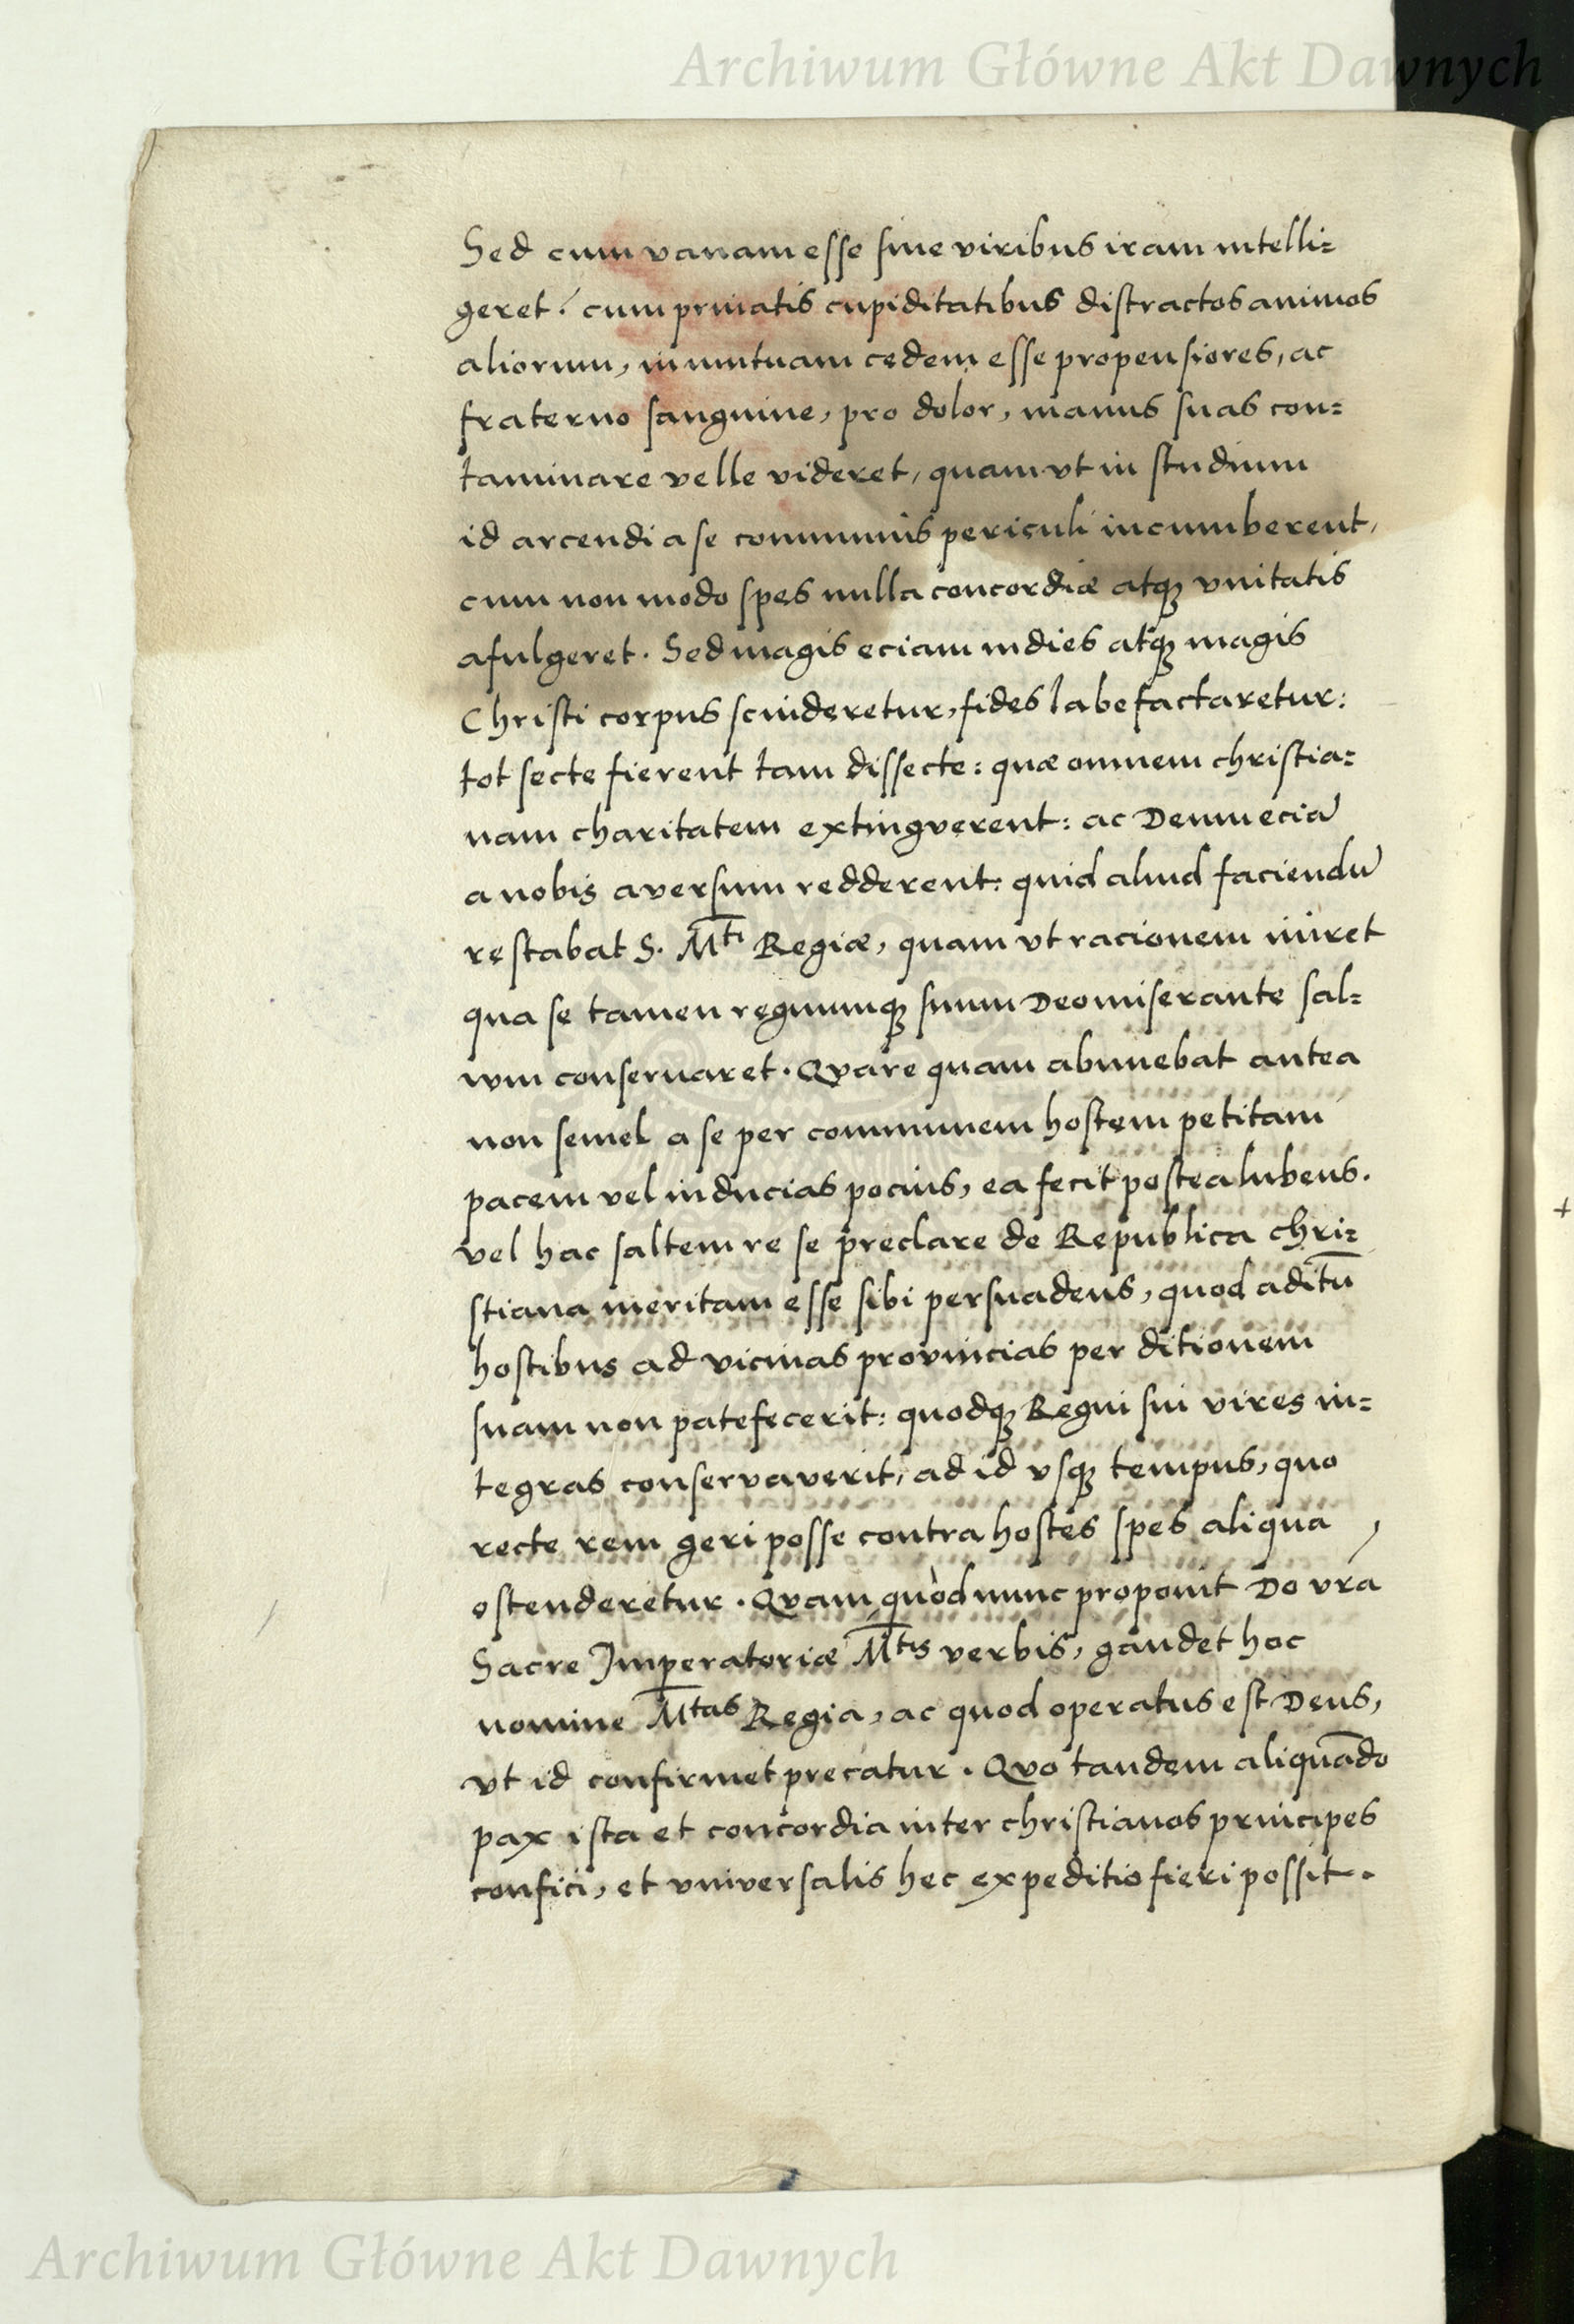 Archiwum Główne Akt Dawnych
Sed cum vanam esse sine viribus iram intelli=
geret: cum privatis cupiditatibus distractos animos
aliorum, in mutuam cedem esse propensiores, ac
fraterno sanguine, pro dolor, manus suas con=
taminare velle videret, quam vt in studium
id arcendi a se communis periculi incumberent,
cum non modo spes nulla concordiæ atqꝫ vnitatis
afulgeret. Sed magis eciam indies atqꝫ magis
Christi corpus scinderetur, fides labefactaretur:
tot secte fierent tam dissecte: quæ omnem christia=
nam charitatem extingverent: ac Deum eciā
a nobis aversum redderent: quid aliud faciendū
restabat S. M̄ti Regiæ, quam vt racionem iniret
qua se tamen regnumqꝫ suum Deo miserante sal=
wm conservaret. Qvare quam abnuebat antea
non semel a se per communem hostem petitam
pacem vel inducias pocius, ea fecit postea lubens.
vel hac saltem re se preclare de Republica chri=
stiana meritam esse sibi persuadens, quod aditū
hostibus ad vicinas provincias per ditionem
suam non patefecerit: quodqꝫ Regni sui vires in=
tegras conservaverit, ad id vsqꝫ tempus, quo
recte rem geri posse contra hostes spes aliqua
ostenderetur. Qvam quòd nunc proponit Do vrā
Sacre Imperatoriæ M̄tis verbis, gaudet hoc
nomine M̄tas Regia, ac quod operatus est Deus,
vt id confirmet precatur. Qvo tandem aliquādo
pax ista et concordia inter christianos principes
confici, et vniversalis hec expeditio fieri possit.
Archiwum Główne Akt Dawnych